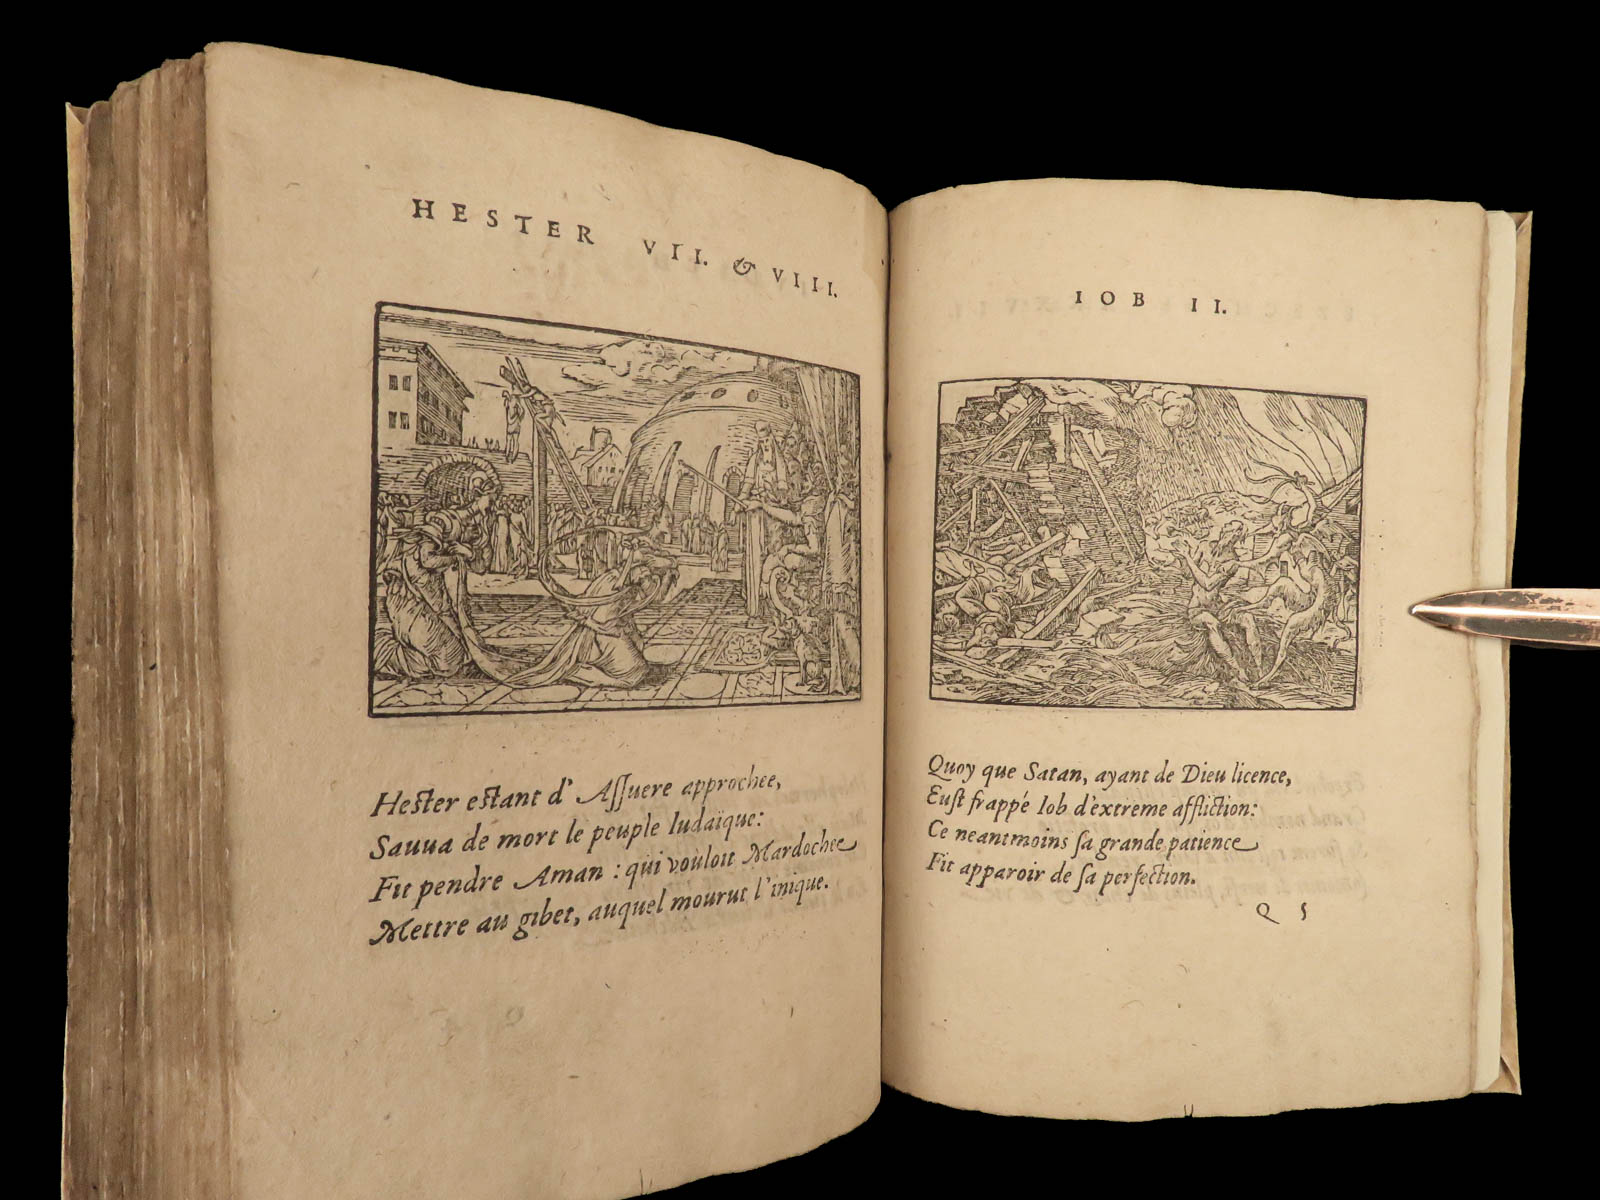 HESTER VII. & VIII.
Hester estant d'Aſſuere approchee,
Sauua de mort le peuple Iudaïque:
Fit pendre Aman : qui vouloit Mardochee
Mettre au gibet, auquel mourut l'inique.
IOB II.
Quoy que Satan, ayant de Dieu licence,
Euſt frappé Iob d'extreme affliction:
Ce neantmoins ſa grande patience
Fit apparoir de ſa perfection.
Q 5